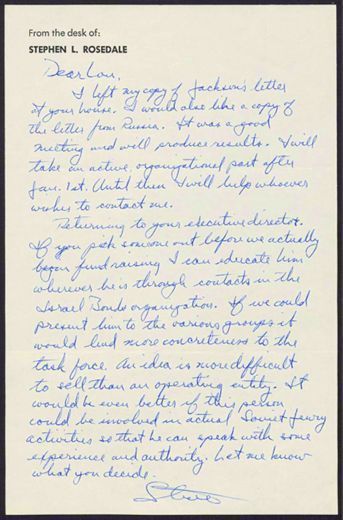 From the desk of:
STEPHEN L. ROSEDALE
Dear Lou,
I left my copy of Jackson's letter
at your house. I would also like a copy of
the letter from Russia. It was a good
meeting and will produce results. I will
take an active, organizational part after
Jan. 1st. Until then I will help whoever
wishes to contact me.
Returning to your executive director.
If you pick someone out before we actually
begin fundraising I can educate him
wherever he is through contacts in the
Israel Bonds organization. If we could
present him to the various groups it
would lend more concreteness to the
task force. An idea is more difficult
to sell than an operating entity. It
would be even better if this person
could be involved in actual Soviet Jewry
activities so that he can speak with some
experience and authority. Let me know
what you decide.
Steve